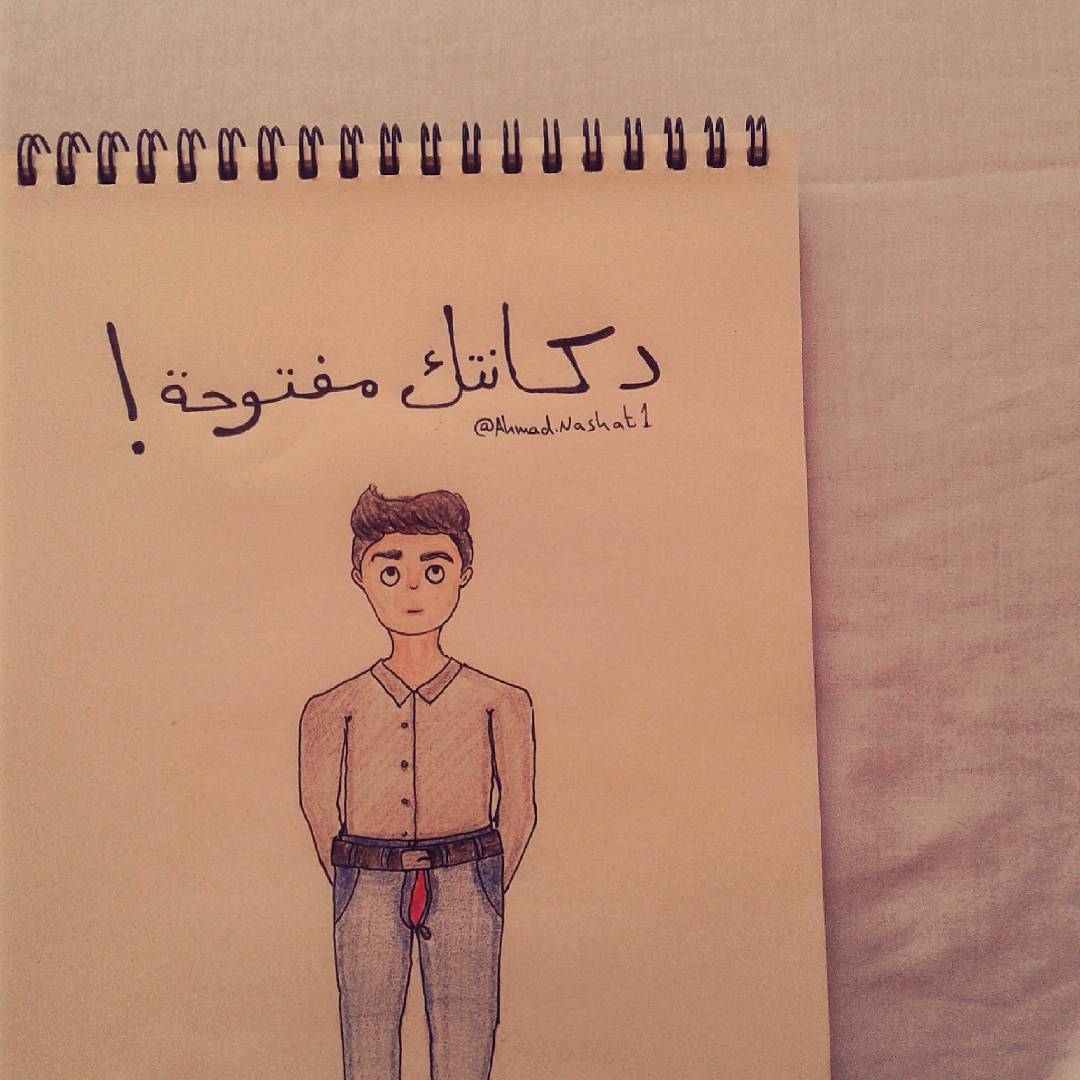 دكانتك مفتوحة !
@Ahmad.Nashat1